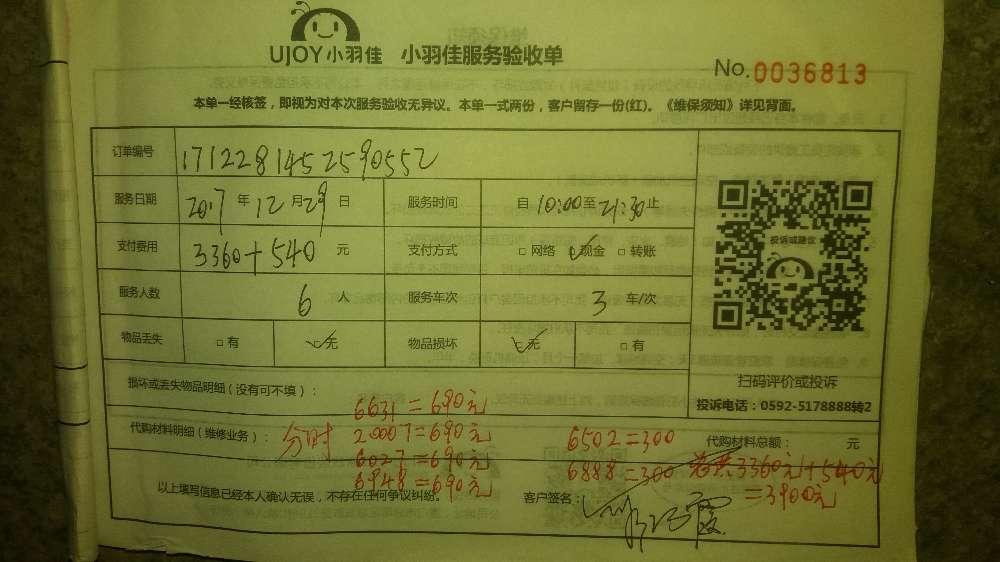 UJOY小羽佳 小羽佳服务验收单
No.0036813
本单一经核签，即视为对本次服务验收无异议。本单一式两份，客户留存一份(红)。《维保须知》详见背面。
订单编号 171228145259055​2
服务日期 2017 年 12 月 29 日 服务时间 自 10:00 至 21:30 止
支付费用 3360+540 元 支付方式 □ 网络 ☑ 现金 □ 转账
投诉或建议
服务人数 6 人 服务车次 3 车/次
物品丢失 □ 有 ☑ 无 物品损坏 ☑ 无 □ 有
扫码评价或投诉
损坏或丢失物品明细（没有可不填）：
投诉电话：0592-5178888转2
6631=690元
代购材料明细（维修业务）： 分时 20007=690元 6502=300 代购材料总额： 元
6027=690元 6888=300 3360元+540元
6948=690元 =3900元
以上填写信息已经本人确认无误，不存在任何争议纠纷。 客户签名：